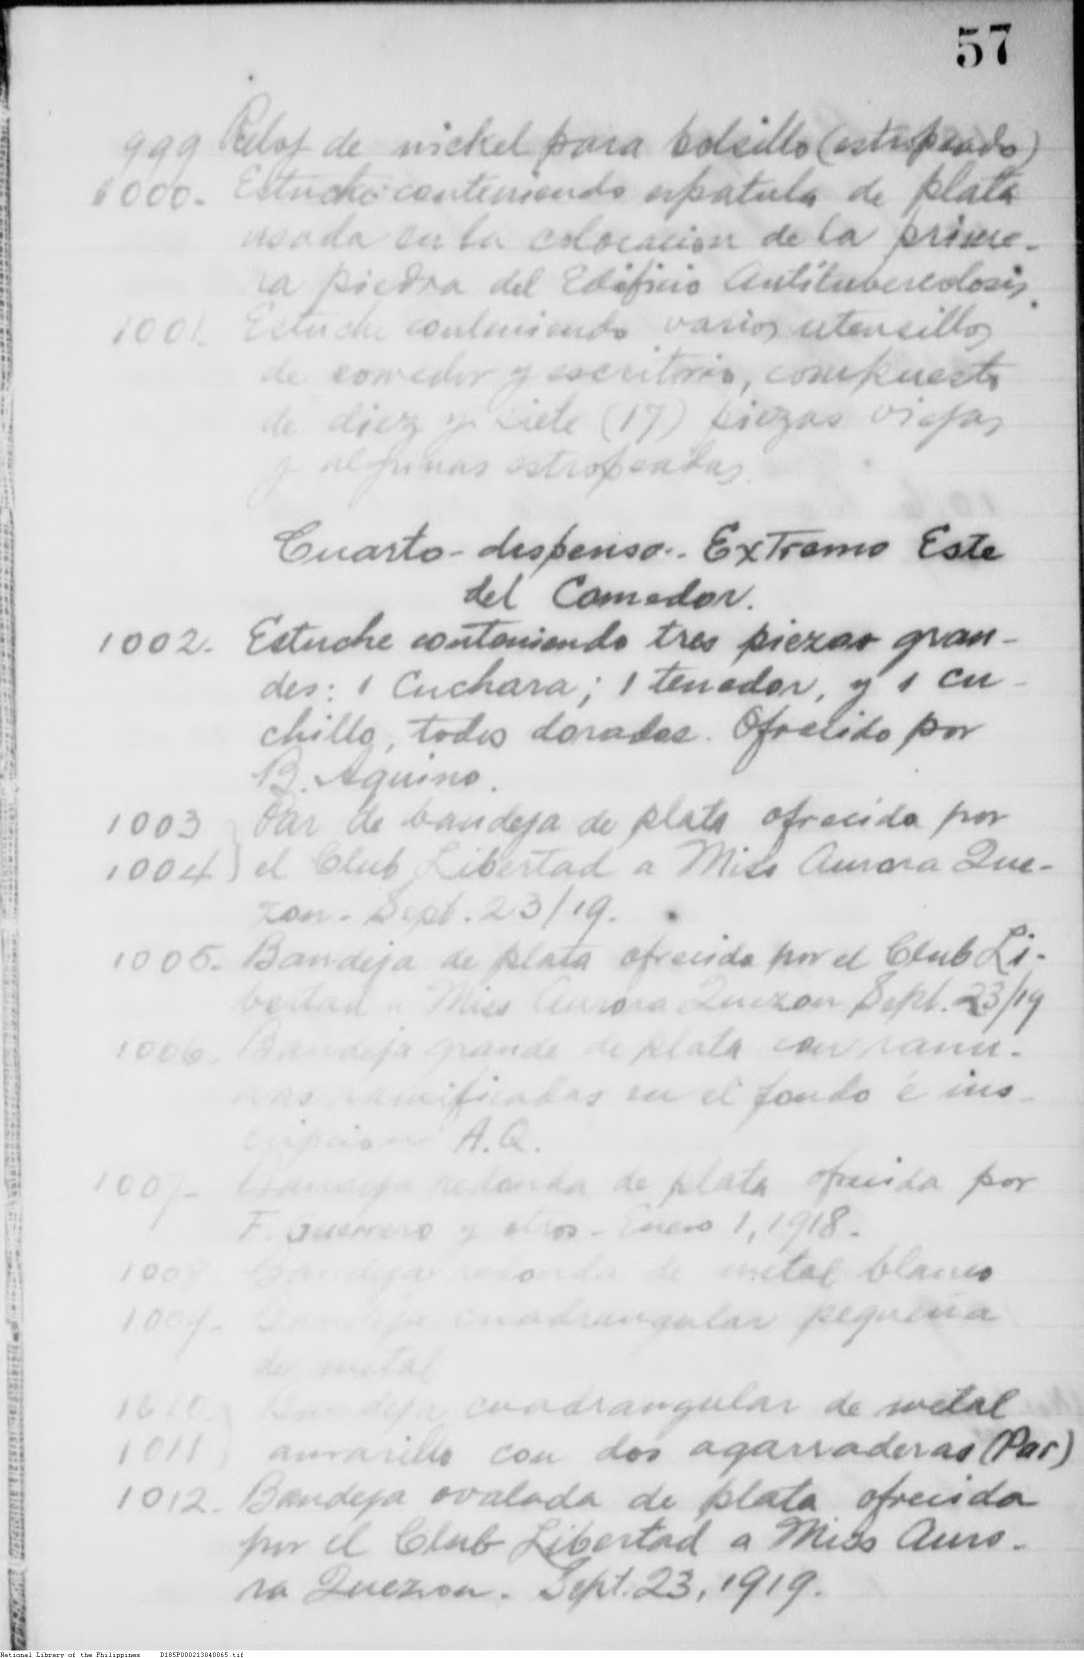 57
999 Reloj de nickel para bolsillo (estropeado)
1000. Estuche conteniendo espatula de plata
usada en la colocacion de la prime-
ra piedra del Edificio Antituberculosis.
1001. Estuche conteniendo varios utensillos
de comedor y escritorio, compuesto
de diez y siete (17) piezas viejas
y algunas estropeadas.
Cuarto-despensa.. Extremo Este
del Comedor.
1002. Estuche conteniendo tres piezas gran-
des: 1 Cuchara; 1 tenedor, y 1 cu-
chillo, todos dorados. Ofrecido por
B. Aquino.
1003 ) Par de bandeja de plata ofrecida por
1004 ) el Club Libertad a Miss Aurora Que-
zon - Sept. 23/19.
1005. Bandeja de plata ofrecida por el Club Li-
bertad a Miss Aurora Quezon Sept. 23/19
1006. Bandeja grande de plata con ranu-
ras ramificadas en el fondo é ins-
cripcion A.Q.
1007- Bandeja redonda de plata ofrecida por
F. Guerrero y otros - Enero 1, 1918.
1008 Bandeja redonda de metal blanco
1009. Bandeja cuadrangular pequeña
de metal
1010 ) Bandeja cuadrangular de metal
1011 ) amarillo con dos agarraderas (Par)
1012. Bandeja ovalada de plata ofrecida
por el Club Libertad a Miss Auro-
ra Quezon. Sept. 23, 1919.
National Library of the Philippines D185P000213040065.tif